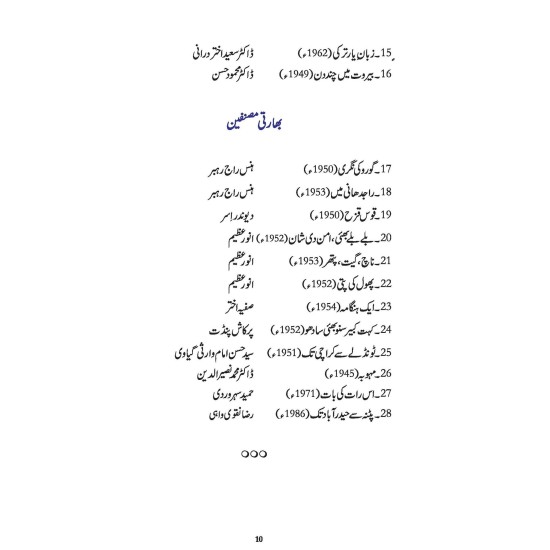 15۔زبان یار ترکی (1962ء) ڈاکٹر سعید اختر درانی
16۔بیروت میں چند دن (1949ء) ڈاکٹر محمود حسن
بھارتی مصنفین
17۔گورو کی نگری (1950ء) ہنس راج رہبر
18۔راجدھانی میں (1953ء) ہنس راج رہبر
19۔قوس قزح (1950ء) دیوندر اسر
20۔بلے بلے بھئی، امن دی شان (1952ء) انور عظیم
21۔ناچ، گیت، پتھر (1953ء) انور عظیم
22۔پھول کی پتی (1952ء) انور عظیم
23۔ایک ہنگامہ (1954ء) صفیہ اختر
24۔کہت کبیر سنو بھئی سادھو (1952ء) پرکاش پنڈت
25۔ٹونڈلے سے کراچی تک (1951ء) سید حسن امام وارثی گیاوی
26۔مہوبہ (1945ء) ڈاکٹر محمد نصیر الدین
27۔اس رات کی بات (1971ء) حمید سہروردی
28۔پٹنہ سے حیدرآباد تک (1986ء) رضا نقوی واہی
○○○
10